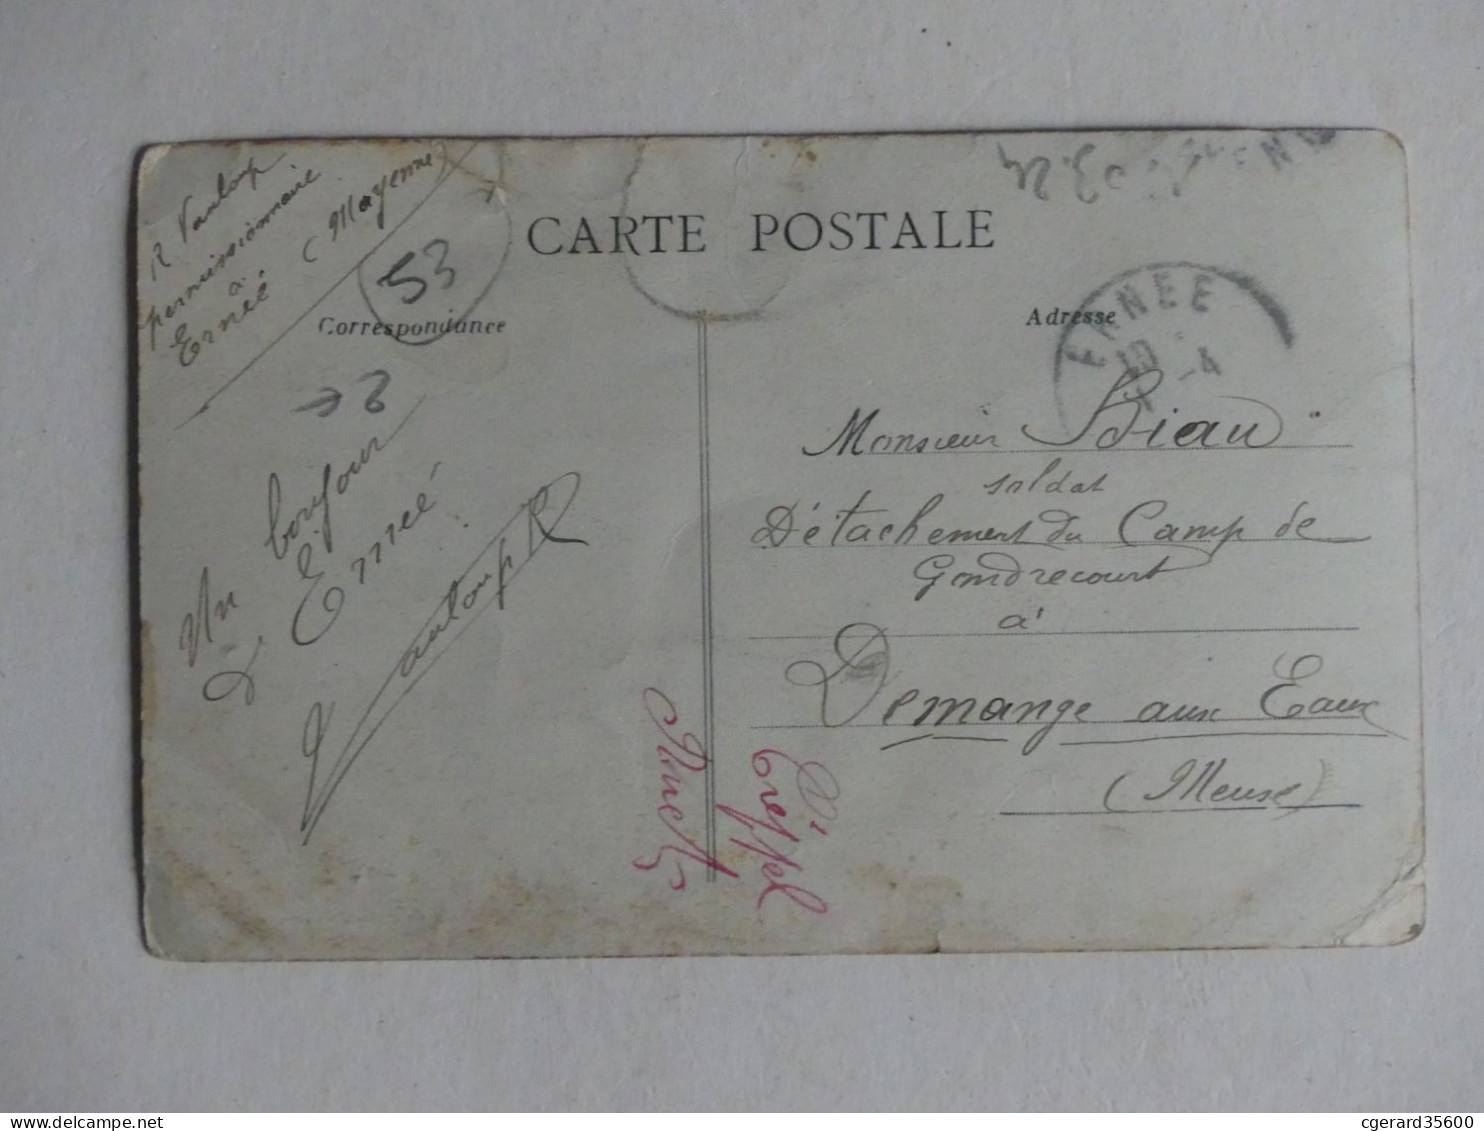 R Vauloup
permissionnaire
à
Ernée (Mayenne)
53
CARTE POSTALE
Correspondance
Adresse
ERNEE
10
-4
Un bonjour
d'Ernée
Vauloup R
Monsieur Biau
soldat
Détachement du Camp de
Gondrecourt
à
Demange aux Eaux
(Meuse)
cgerard35600